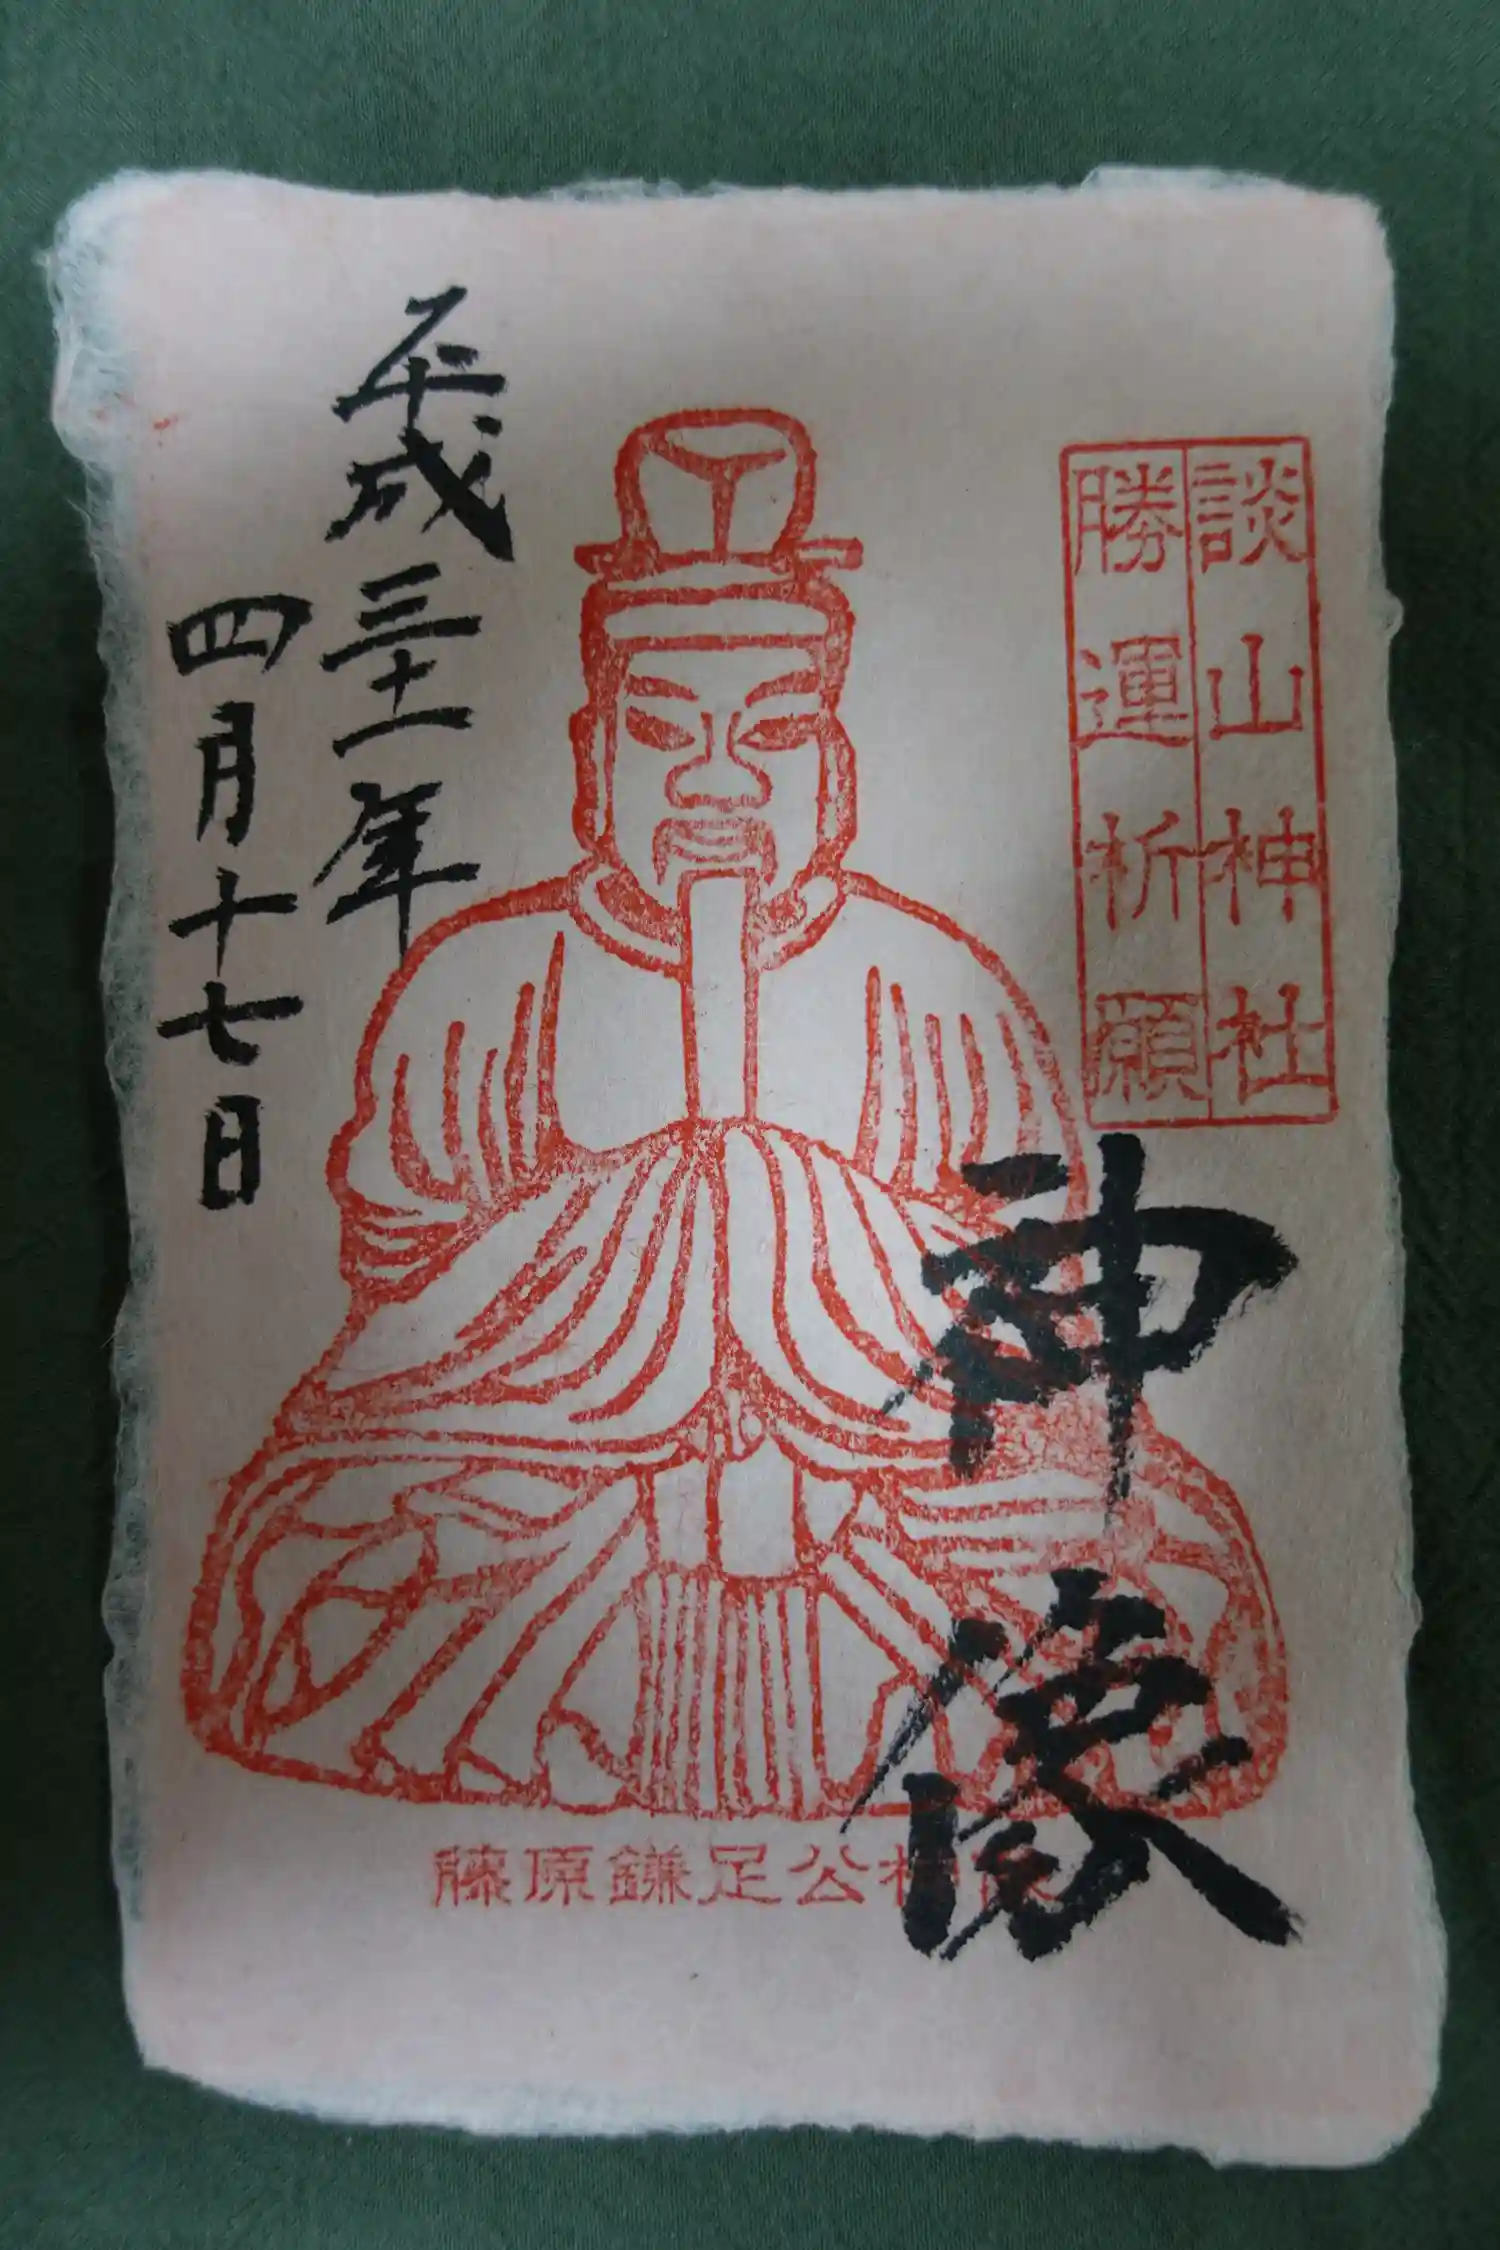 談山神社
勝運祈願
神像
平成三十一年
四月十七日
藤原鎌足公神像